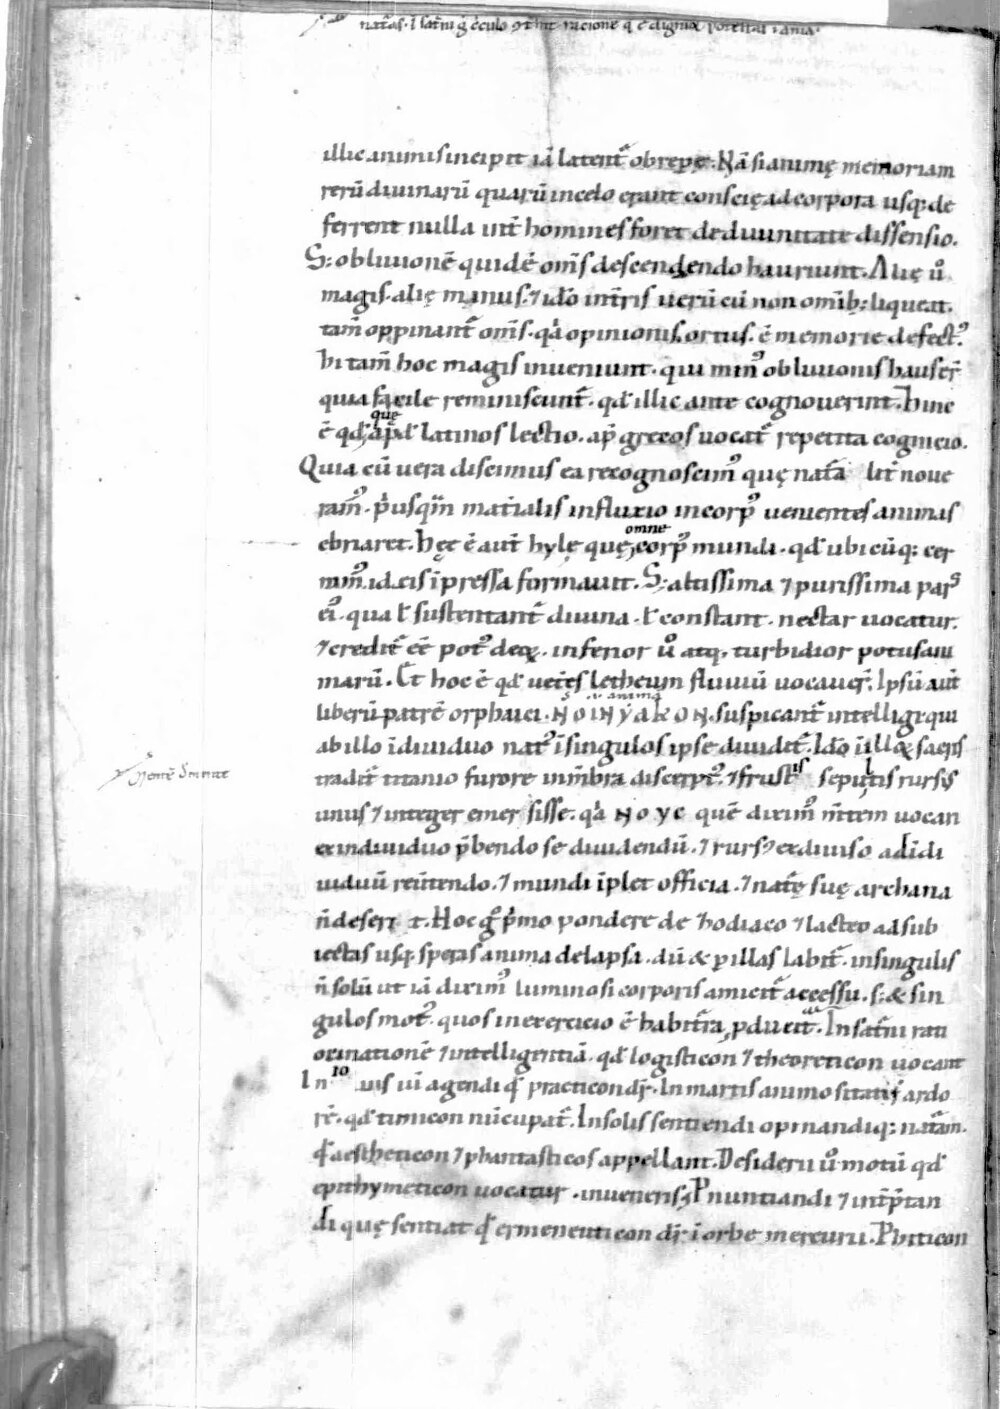 illic animis incipit iã latent᷑ obrepę. Nã si animę memoriam
rerũ diuinarũ quarũ incelo erant consciẹ ad corpora usq; de
ferrent nulla int̃ homines foret dediuinitate dissensio.
S; obliuionẽ quidẽ om̃s descendendo hauriunt. Alię ů
magis. alię minus. ⁊ idõ int̃ris uerũ cũ non omib; liqueat.
tam̃ oppinant᷑ om̃s. qđ opinionis ortus. ẽ memorie defectꝰ.
hi tam̃ hoc magis inueniunt. qui minꝰ obliuionis hauser̃
quia facile reminiscunt᷑. qđ illic ante cognouerint. Hinc
ẽ qđ que ap̃d latinos lectio. ap̃ grecos uocat᷑ repetita cognicio.
Quia cũ uera discimus ea recognoscimꝰ quę nat̃a lit̃ noue
ram̃ꝰ. p̃usqm̃ mat̃ialis influxio incorpꝰ uenientes animas
ebriaret. Hęc ẽ aut̃ hylę quę omne corpꝰ mundi. qđ ubicũq; cer
nimꝰ. id eis ĩpressa formauit. S; altissima ⁊ purissima pars
eiꝰ. qua ł sustentant᷑ diuina. ł constant. nectar uocatur.
⁊ credit᷑ eẽ potꝰ deoꝝ. inferior ů atq. turbidior potus ani
marũ. Et hoc ẽ qđ uetẽs letheum fluuiũ uocauer̃. Ipsũ aut̃
liberũ patrẽ orphaici. NOINYAKON. suspicant᷑ intelligi. qui
ab illo ĩdiuiduo natꝰ ĩ singulos ipse diuidit᷑. Idõ ĩ illoꝝ sacris
tradit᷑ titanio furore inm̃bra discerptꝰ. ⁊ frustis sepultis rursꝰ
unus ⁊ integer emersisse. qđ NOYC quẽ diximꝰ m̃tem uocan
ex indiuiduo p̃bendo se diuidendũ. ⁊ rursꝰ exdiuiso ad ĩdi
uiduũ reũtendo. ⁊ mundi ĩplet officia. ⁊ nat̃ę suę archana
ñ deserit. Hoc gͦ p̃mo pondere de zodiaco ⁊ lacteo ad sub
iectas usq; speras anima delapsa. dũ & ꝑ illas labit᷑. insingulis
ñ solũ ut iã diximꝰ luminosi corporis amicit᷑ accessu. s; & sin
gulos motꝰ. quos inexercicio ẽ habit̃a, ꝓducit. In sat̃ni rati
ocinationẽ ⁊ intelligentiã. qđ logisticon ⁊ theoreticon uocant
In io uis uĩ agendi qđ practicon dr̃. In martis animositatis ardo
rẽ. qđ timicon nũcupat᷑. In solis sentiendi opinandiq; nat̃am.
qđ aestheticon ⁊ phantasticos appellant. Desiderii ů motũ qđ
epithymeticon uocatur. inueneris. Pnuntiandi ⁊ int̃p̃tan
di quę sentiat qđ ermeneuticon dr̃. ĩ orbe mercurii. Phiticon